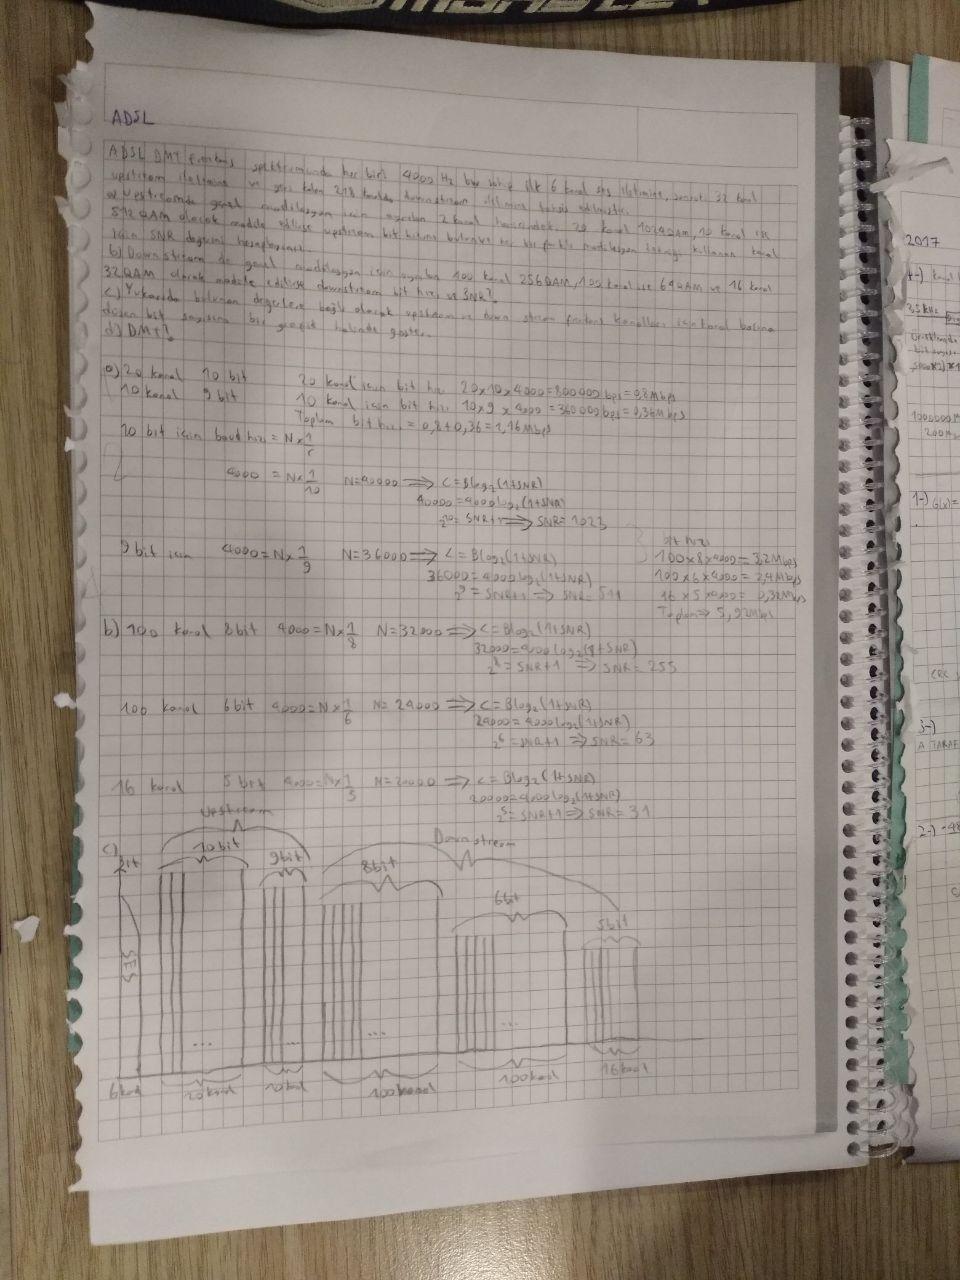 ADSL
ADSL DMT frekans spektrumunda her biri 4000 Hz ilk 6 kanal ses iletimine, sonraki 32 kanal
upstream iletimine ve geri kalan 218 kanalda downstream iletimine tahsis edilmiştir.
a) Upstreamde modülasyon için ayrılan 2 kanal haricindeki, 20 kanal 1024QAM, 10 kanal ise
512QAM olacak module edilirse upstream bit hızını bulunuz ve her bir farklı modülasyon kullanan kanal
için SNR değerini hesaplayınız.
b) Downstream de modülasyon için ayrılan 100 kanal 256QAM, 100 kanal ise 64QAM ve 16 kanal
32QAM olarak module edilirse downstream bit hızı ve SNR?
c) Yukarıda bulunan değerlere bağlı olarak upstream ve down stream frekans kanalları için kanal başına
düşen bit sayısını bir grafik halinde göster.
d) DMT?
a) 20 kanal 10 bit 20 kanal için bit hızı 20x10x4000=800000bps=0,8Mbps
10 kanal 9 bit 10 kanal için bit hızı 10x9x4000=360000bps=0,36Mbps
Toplam bit hızı = 0,8+0,36=1,16Mbps
10 bit için baud hızı = N x 1/r
4000 = N x 1/10 N=40000 ⟹ C=Blog₂(1+SNR)
40000=4000log₂(1+SNR)
2¹⁰= SNR+1 ⟹ SNR=1023
9 bit için 4000=N x 1/9 N=36000 ⟹ C=Blog₂(1+SNR)
36000=4000log₂(1+SNR)
2⁹= SNR+1 ⟹ SNR=511
Bit hızı
100x8x4000=3,2Mbps
100x6x4000=2,4Mbps
16x5x4000=0,32Mbps
Toplam⇒5,92Mbps
b) 100 kanal 8bit 4000=N x 1/8 N=32000 ⟹ C=Blog₂(1+SNR)
32000=4000log₂(1+SNR)
2⁸=SNR+1 ⟹ SNR=255
100 kanal 6bit 4000=N x 1/6 N=24000 ⟹ C=Blog₂(1+SNR)
24000=4000log₂(1+SNR)
2⁶=SNR+1 ⟹ SNR=63
16 kanal 5bit 4000=N x 1/5 N=20000 ⟹ C=Blog₂(1+SNR)
20000=4000log₂(1+SNR)
2⁵=SNR+1 ⟹ SNR=31
c)
Upstream Downstream
Bit 10bit 9bit 8bit 6bit 5bit
SES
... ... ... ...
6kanal 20kanal 10kanal 100kanal 100kanal 16kanal
2017
1000000
200
1-) G(x)=
CRC
3-)
A TARAF
2-)